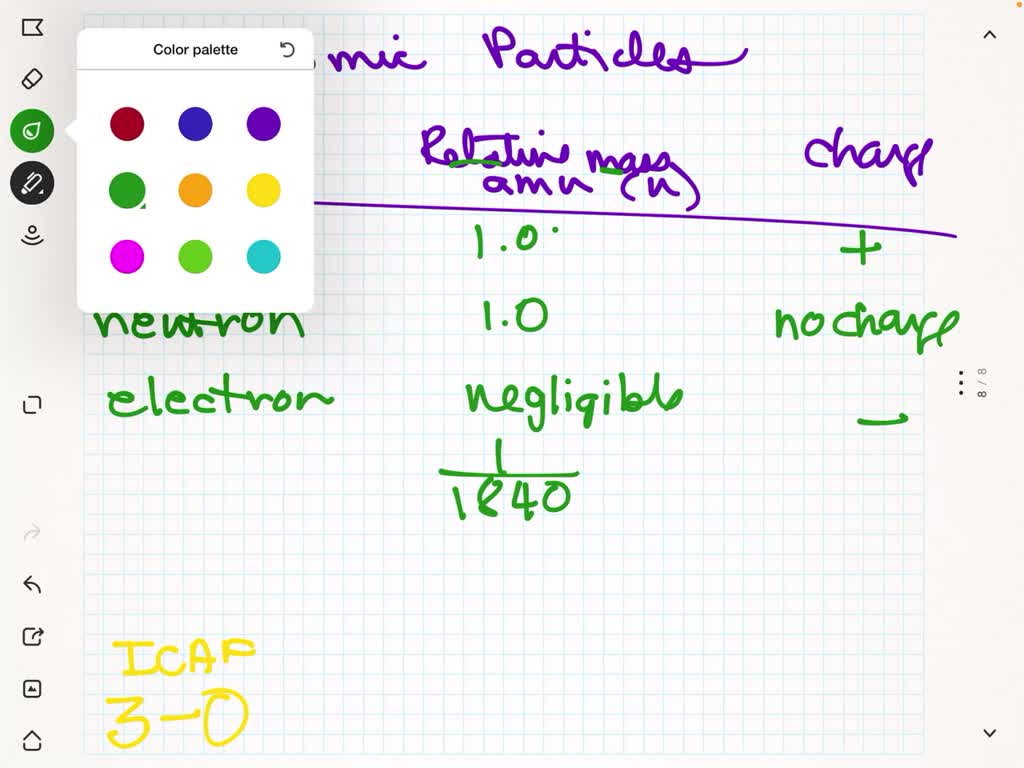 Color palette
mic Particles
Relative mass charge
amu (u)
1.0 +
neutron 1.0 no charge
electron negligible —
1
1840
8 / 8
ICAF
3-0